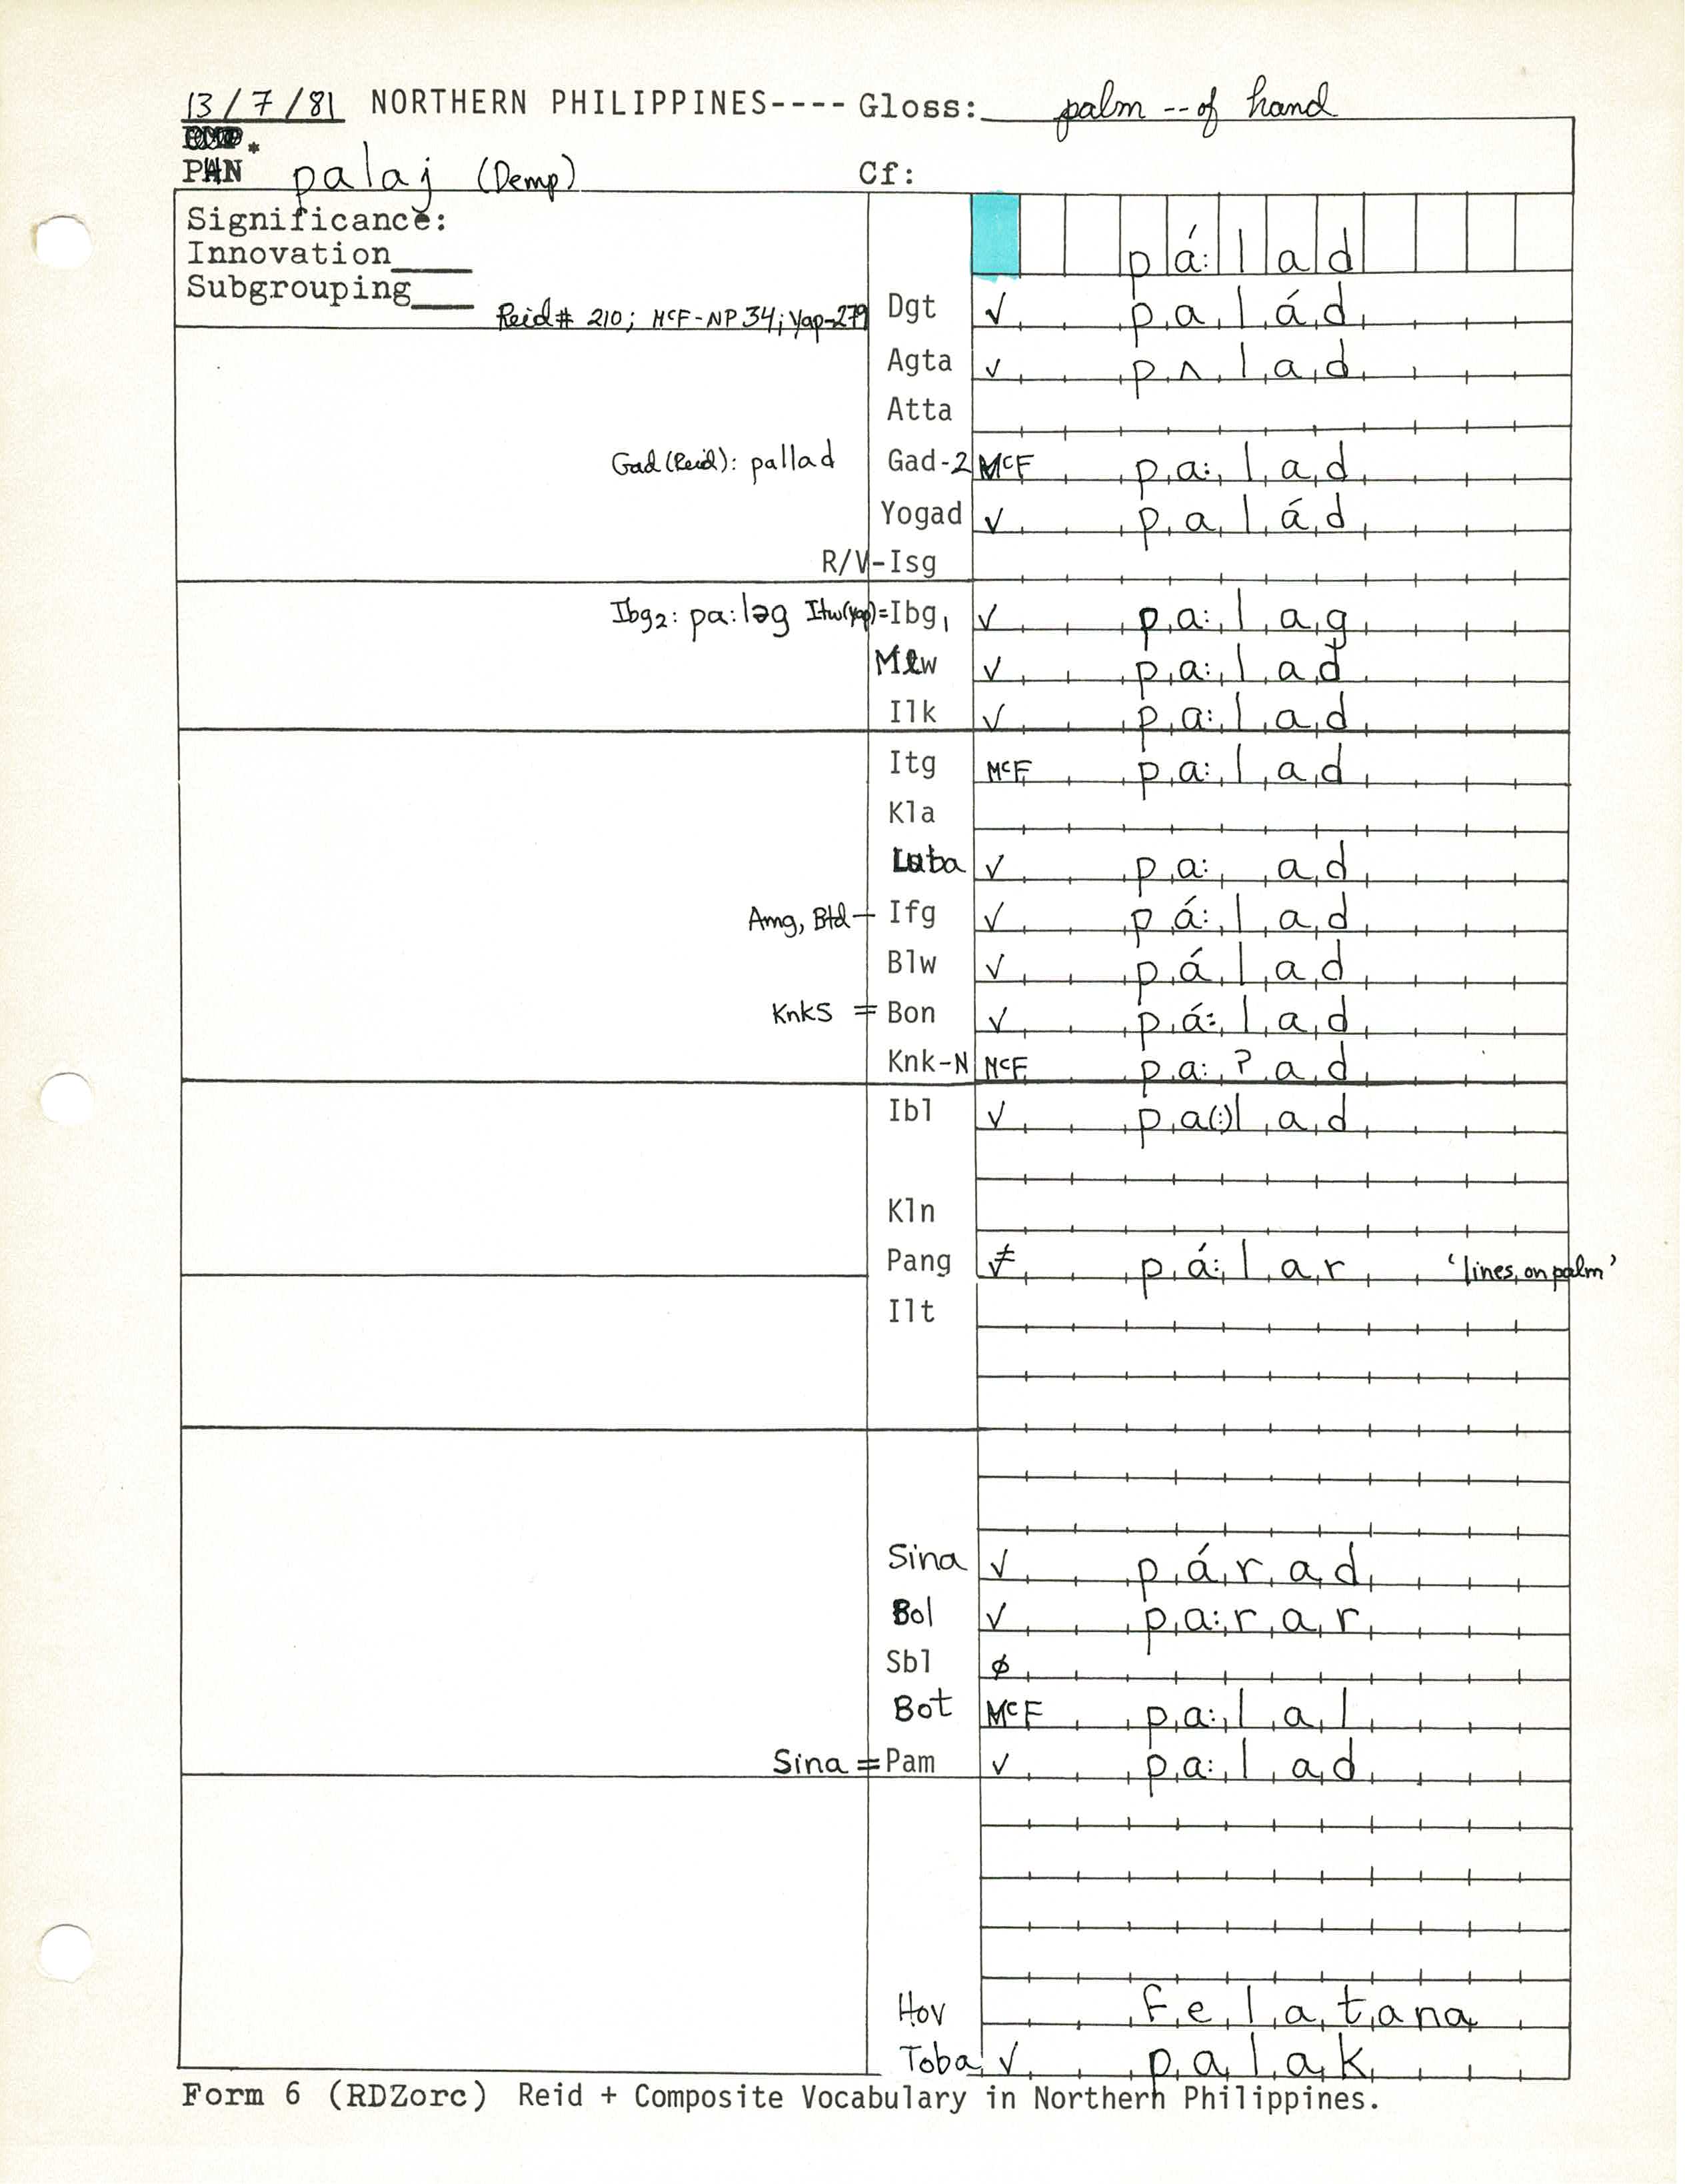 13/7/81 NORTHERN PHILIPPINES---- Gloss: palm -- of hand
*
PAN palaj (Demp) Cf:
Significance:
Innovation____ pá:lad
Subgrouping___
Reid# 210; McF-NP 34; Yap-279 Dgt √ palád
Agta √ pʌlad
Atta
Gad (Reid): pallad Gad-2 McF pa:lad
Yogad √ palád
R/V-Isg
Ibg2: pa:ləg Itw(Yap)=Ibg1 √ pa:lag
Mlw √ pa:lad
Ilk √ pa:lad
Itg McF pa:lad
Kla
Luba √ pa: ad
Amg, Btd- Ifg √ pá:lad
Blw √ pálad
KnkS = Bon √ pá:lad
Knk-N McF pa:?ad
Ibl √ pa(:)lad
Kln
Pang ≠ pá:lar 'lines on palm'
Ilt
Sina √ párad
Bol √ pa:rar
Sbl ∅
Bot McF pa:lal
Sina = Pam √ pa:lad
Hov felatana
Toba √ palak
Form 6 (RDZorc) Reid + Composite Vocabulary in Northern Philippines.